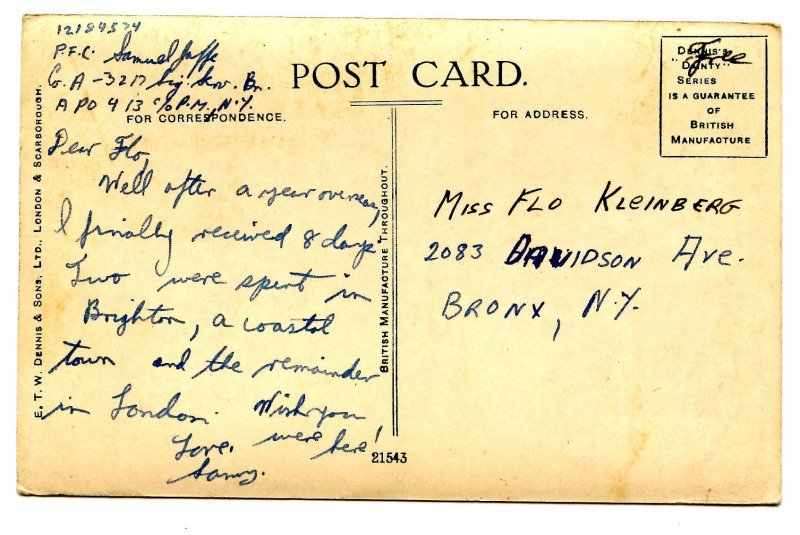 12184574
P.F.C. Samuel Jaffe
Co. A - 3217 Sig. Serv. Bn.
APO 413 c/o P.M., N.Y.
POST CARD.
FOR CORRESPONDENCE.
FOR ADDRESS.
DENNIS'S
"DAINTY"
SERIES
IS A GUARANTEE
OF
BRITISH
MANUFACTURE
Free
Dear Flo,
Well after a year overseas,
I finally received 8 days.
Two were spent in
Brighton, a coastal
town and the remainder
in London. Wish you
were here!
Love,
Sammy.
MISS FLO KLEINBERG
2083 DAVIDSON Ave.
BRONX, N.Y.
E. T. W. DENNIS & SONS, LTD., LONDON & SCARBOROUGH.
BRITISH MANUFACTURE THROUGHOUT.
21543